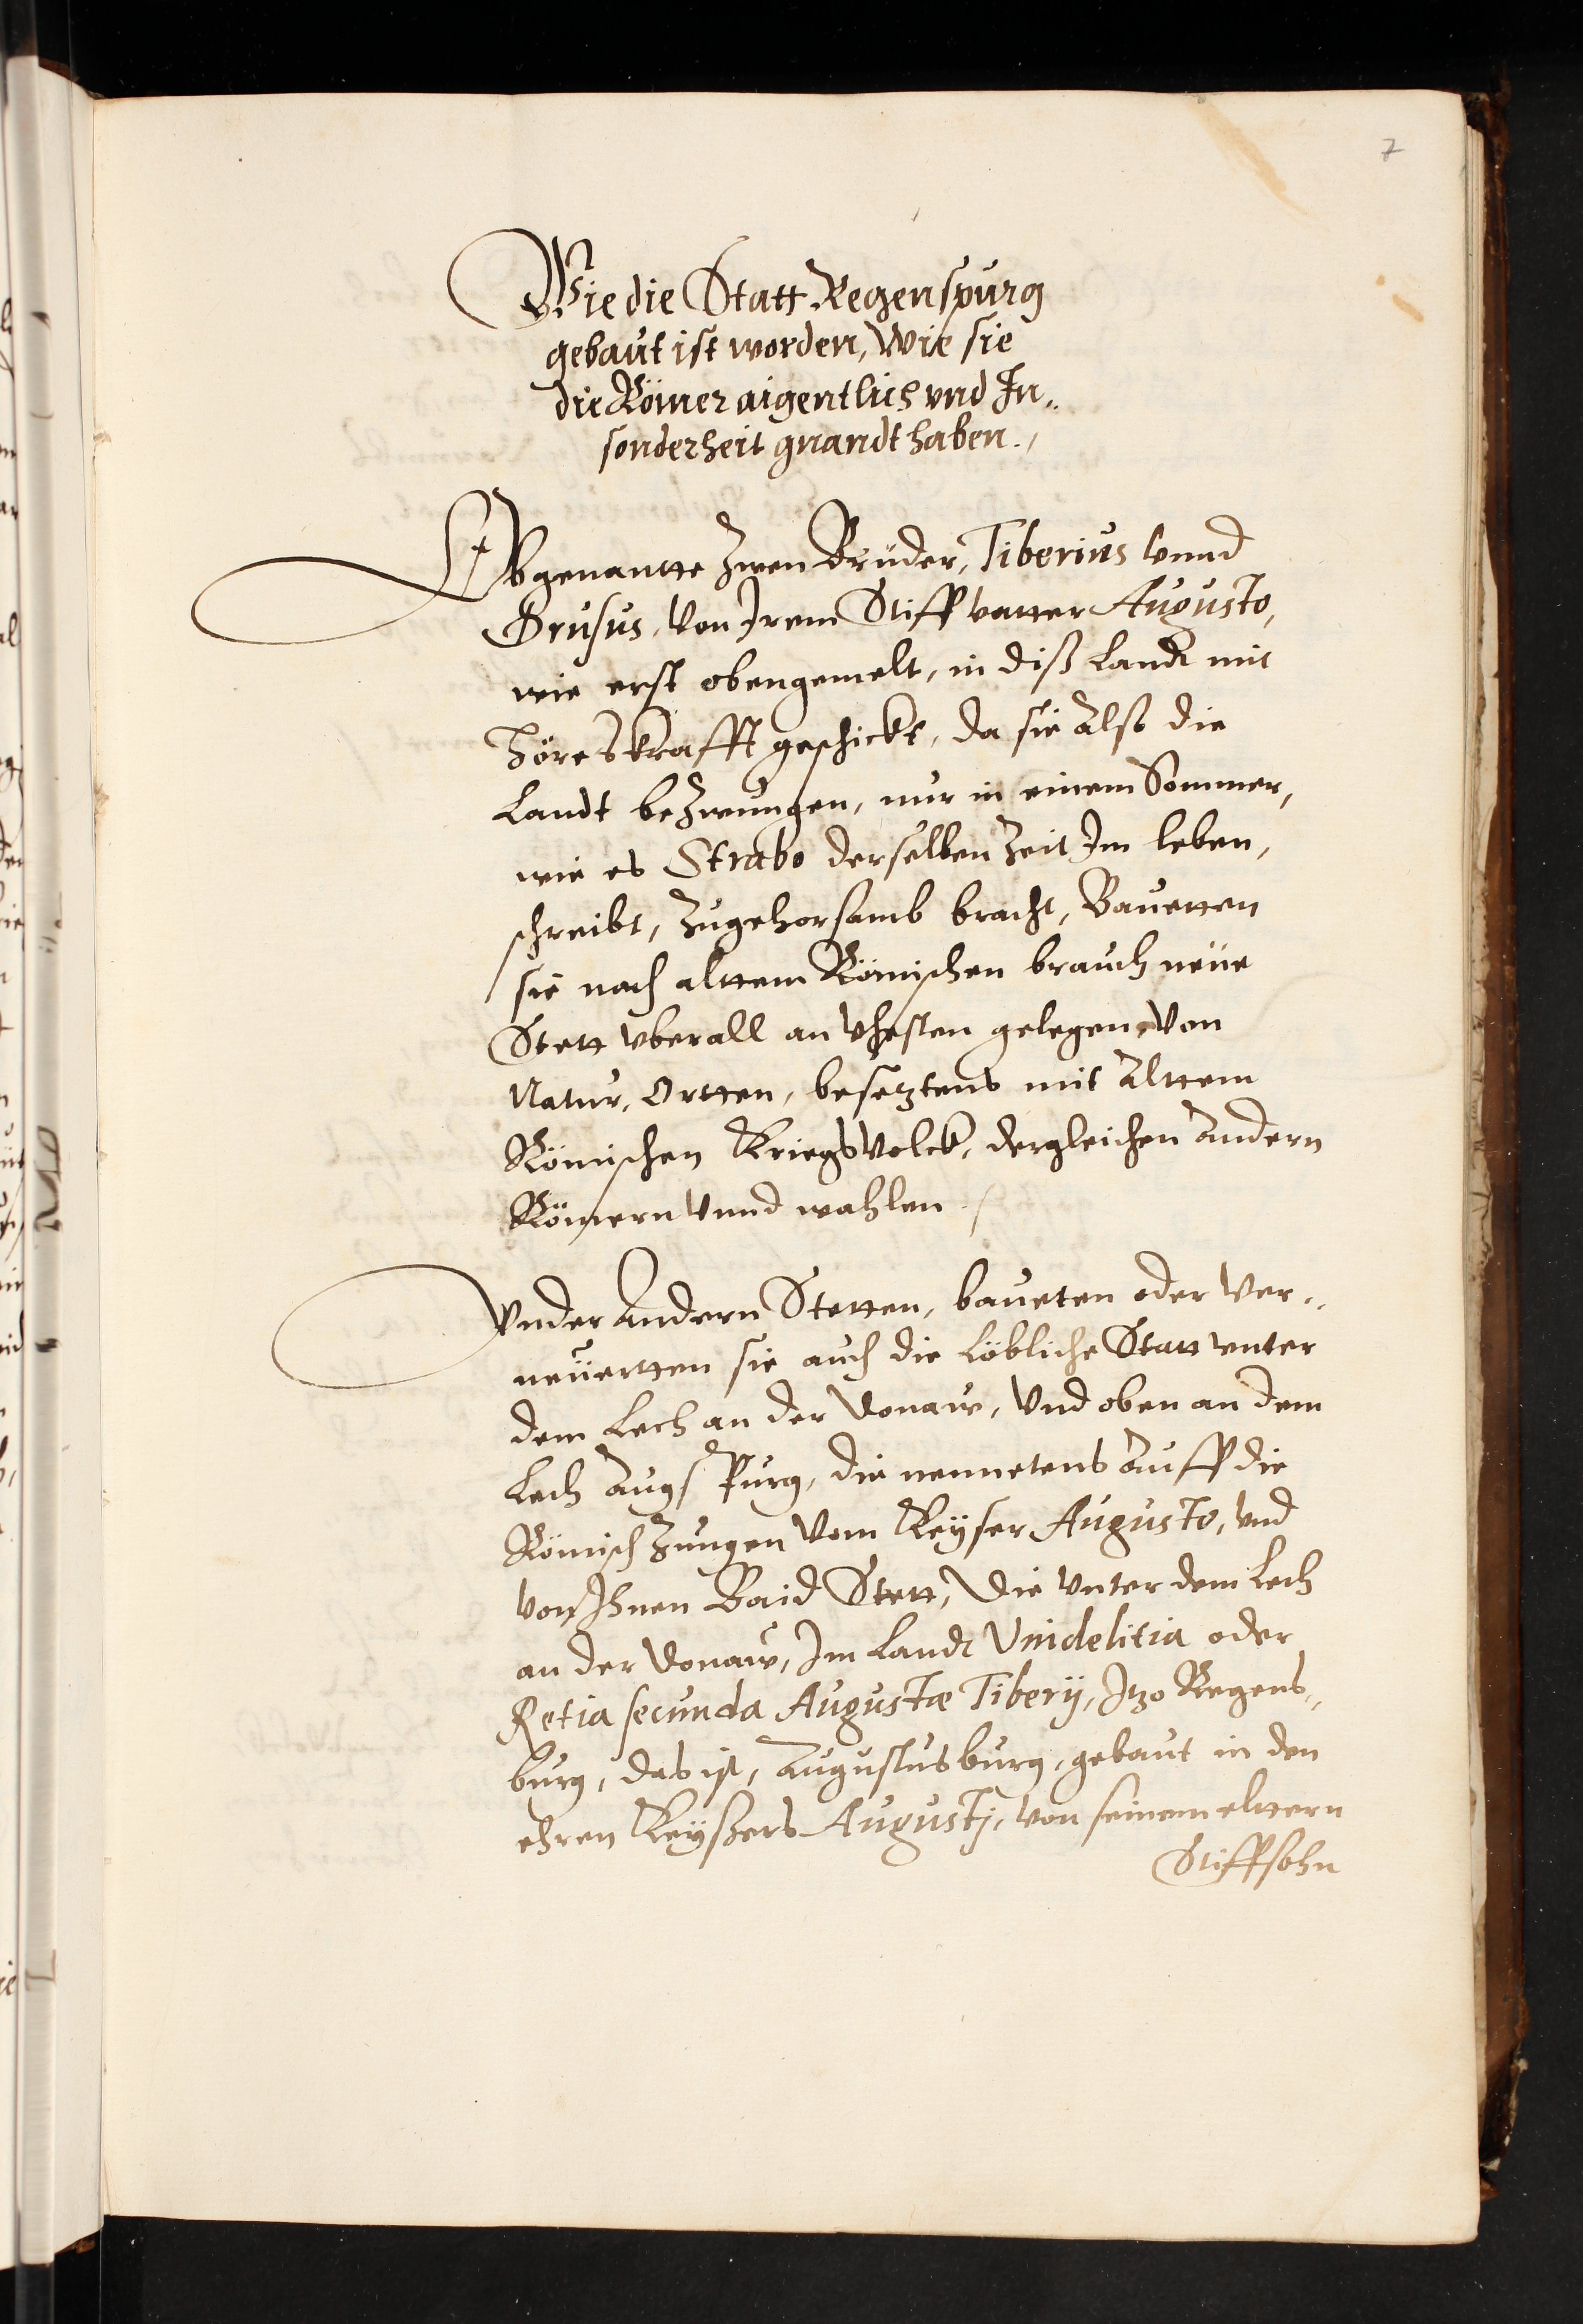 7
Wie die Statt Regenspurg
gebaut ist worden, Wie sie
die Römer aigentlich vnd In„
sonderheit gnandt haben.
Obgenantte zwen Brüder, Tiberius vnnd
Drusus, von Irem Stiffvatter Augusto,
wie erst obengemelt, in diß Landt mit
Höreskrafft geschickt, da sie Alß die
Landt bezwungen, nur in einem Sommer,
wie es Strabo derselben Zeit Im leben,
schreibt, zugehorsamb bracht, Bauetten
sie nach alttem Römischen brauch neüe
Stett vberall an vhesten gelegen von
Natur, Ortten, besetztens mit Alttem
Römischen Kriegsvolck, dergleichen Andern
Römern vnnd wahlen
Vnder Andern Stetten, baueten oder Ver„
neüertten sie auch die Löbliche Statt vnter
dem Lech an der Donaw, Vnd oben an dem
Lech Augspurg, die nennetens Auff die
Römisch Zungen vom Keyser Augusto, vnd
von Ihnen Baid Stett, Die vnter dem Lech
an der Donaw, Im Landt Vnidelitia oder
Retia secunda Augustæ Tiberij, Itzo Regens„
burg, das ist, Augustusburg, gebaut in den
ehren Keyßers Augustj, von seinem elttern
Stiffsohn